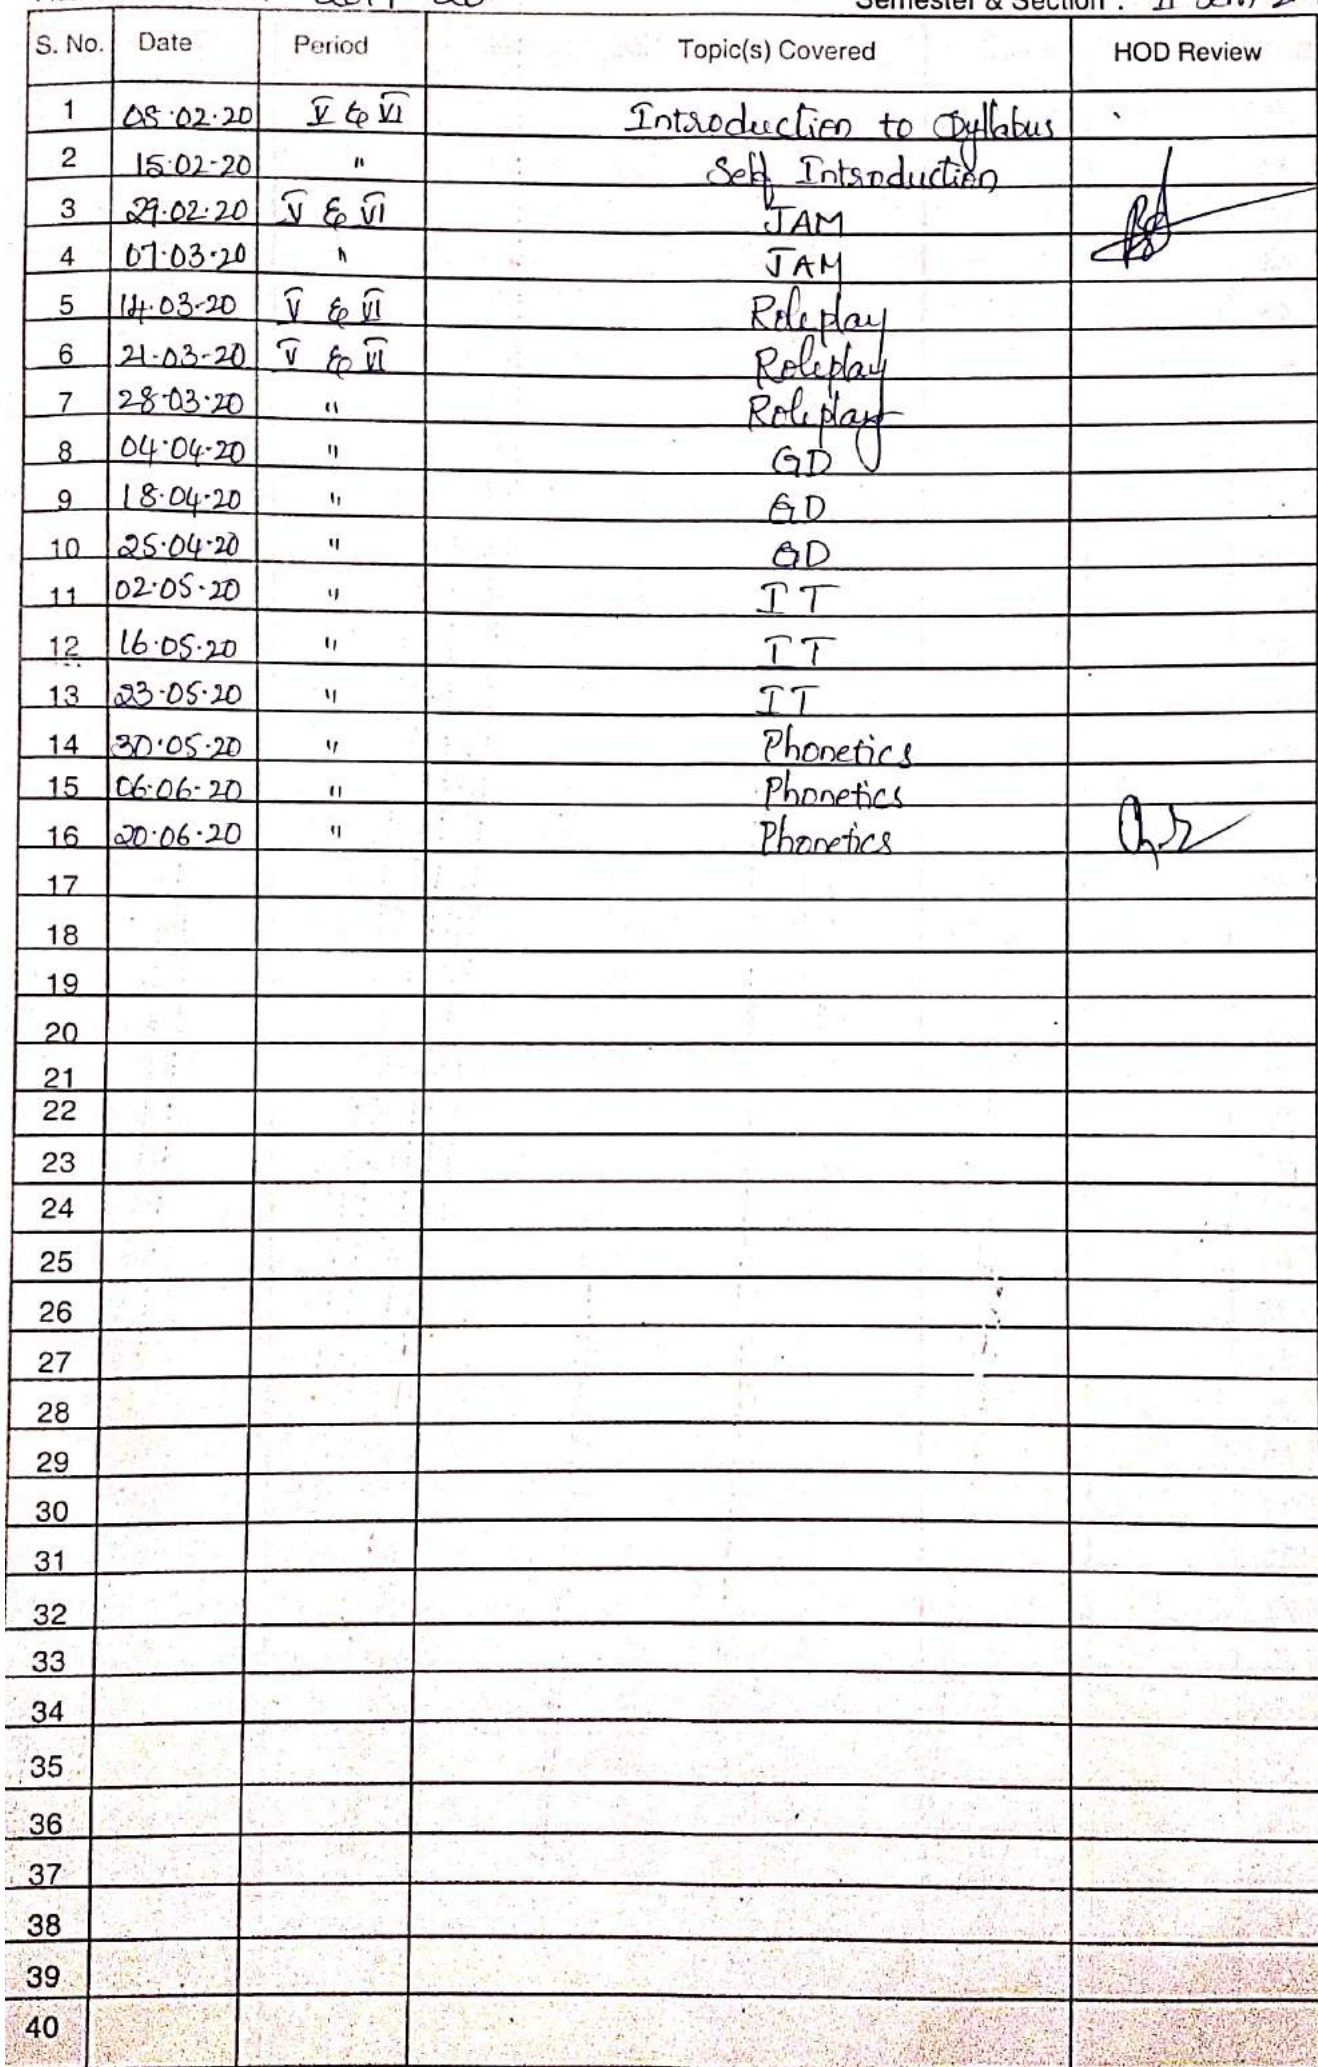 Semester & Section : II Sem
S. No. Date Period Topic(s) Covered HOD Review
1 08.02.20 V & VI Introduction to Syllabus
2 15.02.20 " Self Introduction
3 29.02.20 V & VI JAM
4 07.03.20 " JAM
5 14.03.20 V & VI Roleplay
6 21.03.20 V & VI Roleplay
7 28.03.20 " Roleplay
8 04.04.20 " GD
9 18.04.20 " GD
10 25.04.20 " GD
11 02.05.20 " IT
12 16.05.20 " IT
13 23.05.20 " IT
14 30.05.20 " Phonetics
15 06.06.20 " Phonetics
16 20.06.20 " Phonetics
17
18
19
20
21
22
23
24
25
26
27
28
29
30
31
32
33
34
35
36
37
38
39
40